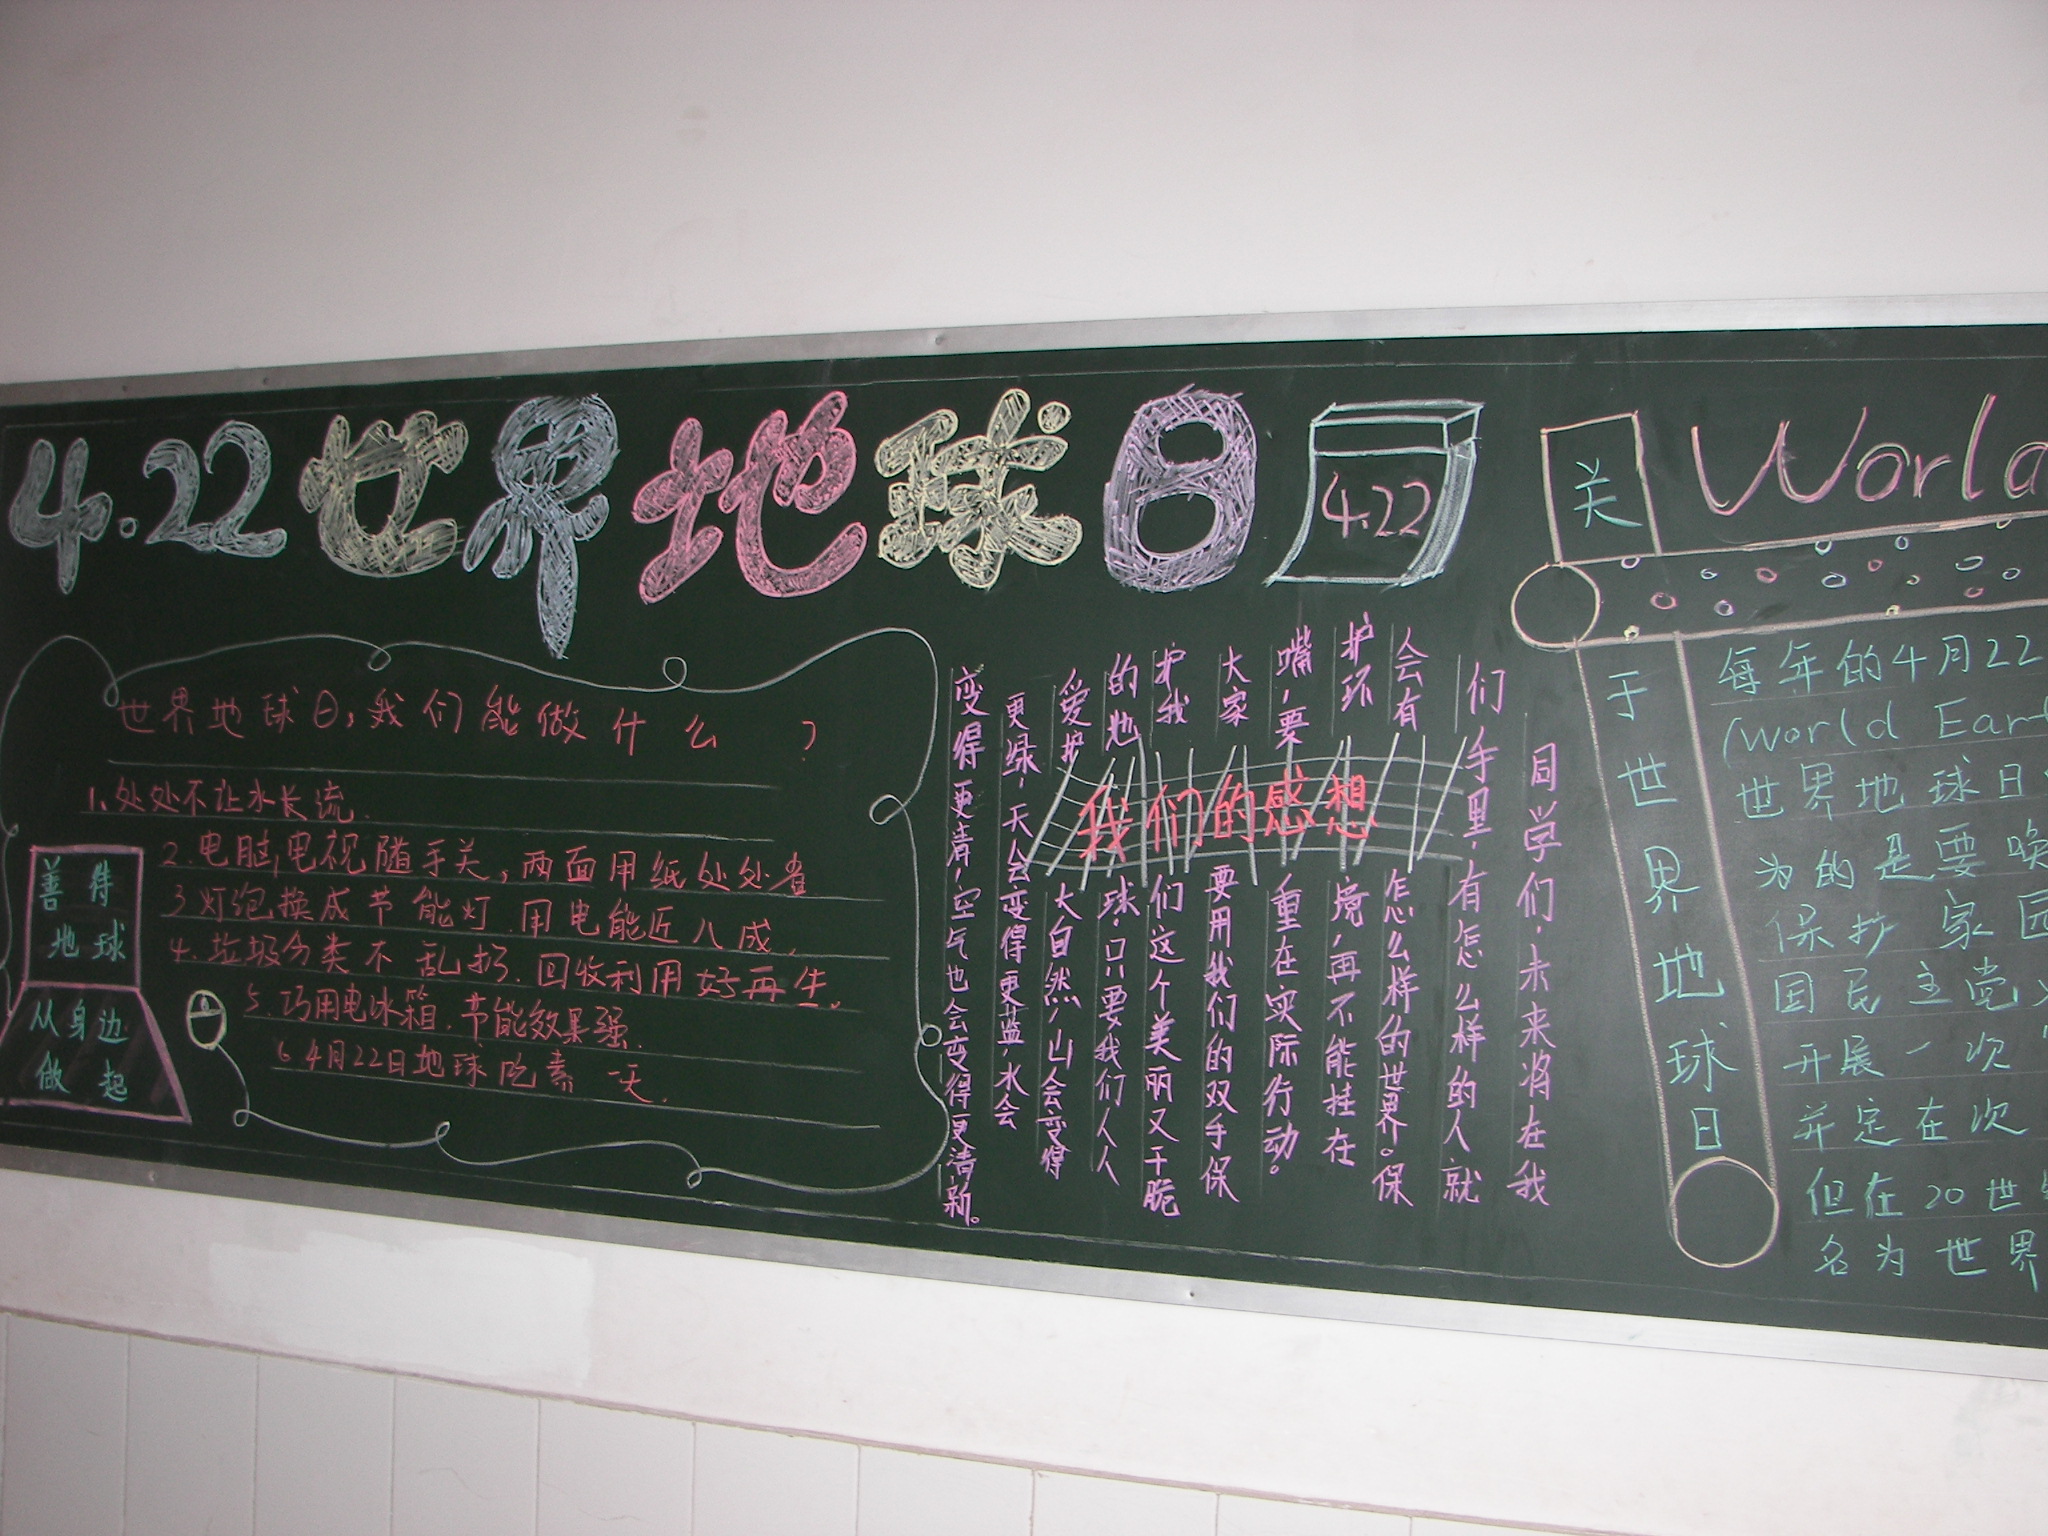 4.22世界地球日
4.22
世界地球日,我们能做什么?
1.处处不让水长流.
2.电脑,电视随手关,两面用纸处处省
3灯泡换成节能灯.用电能近八成.
4.垃圾分类不乱扔.回收利用好再生.
5.巧用电冰箱.节能效果强.
6.4月22日地球吃素一天.
善待
地球
从身边
做起
我们的感想
同学们,未来将在我
们手里,有怎么样的人就
会有怎么样的世界。保
护环境,再不能挂在
嘴,要重在实际行动。
大家要用我们的双手保
护我们这个美丽又干脆
的地球.只要我们人人
爱护大自然,山会变得
更绿,天会变得更蓝,水会
变得更清,空气也会变得更清新。
关于世界地球日
World
每年的4月22
(World Ear
世界地球日
为的是要唤
保护家园
国民主党
开展一次
并定在次
但在20世
名为世界